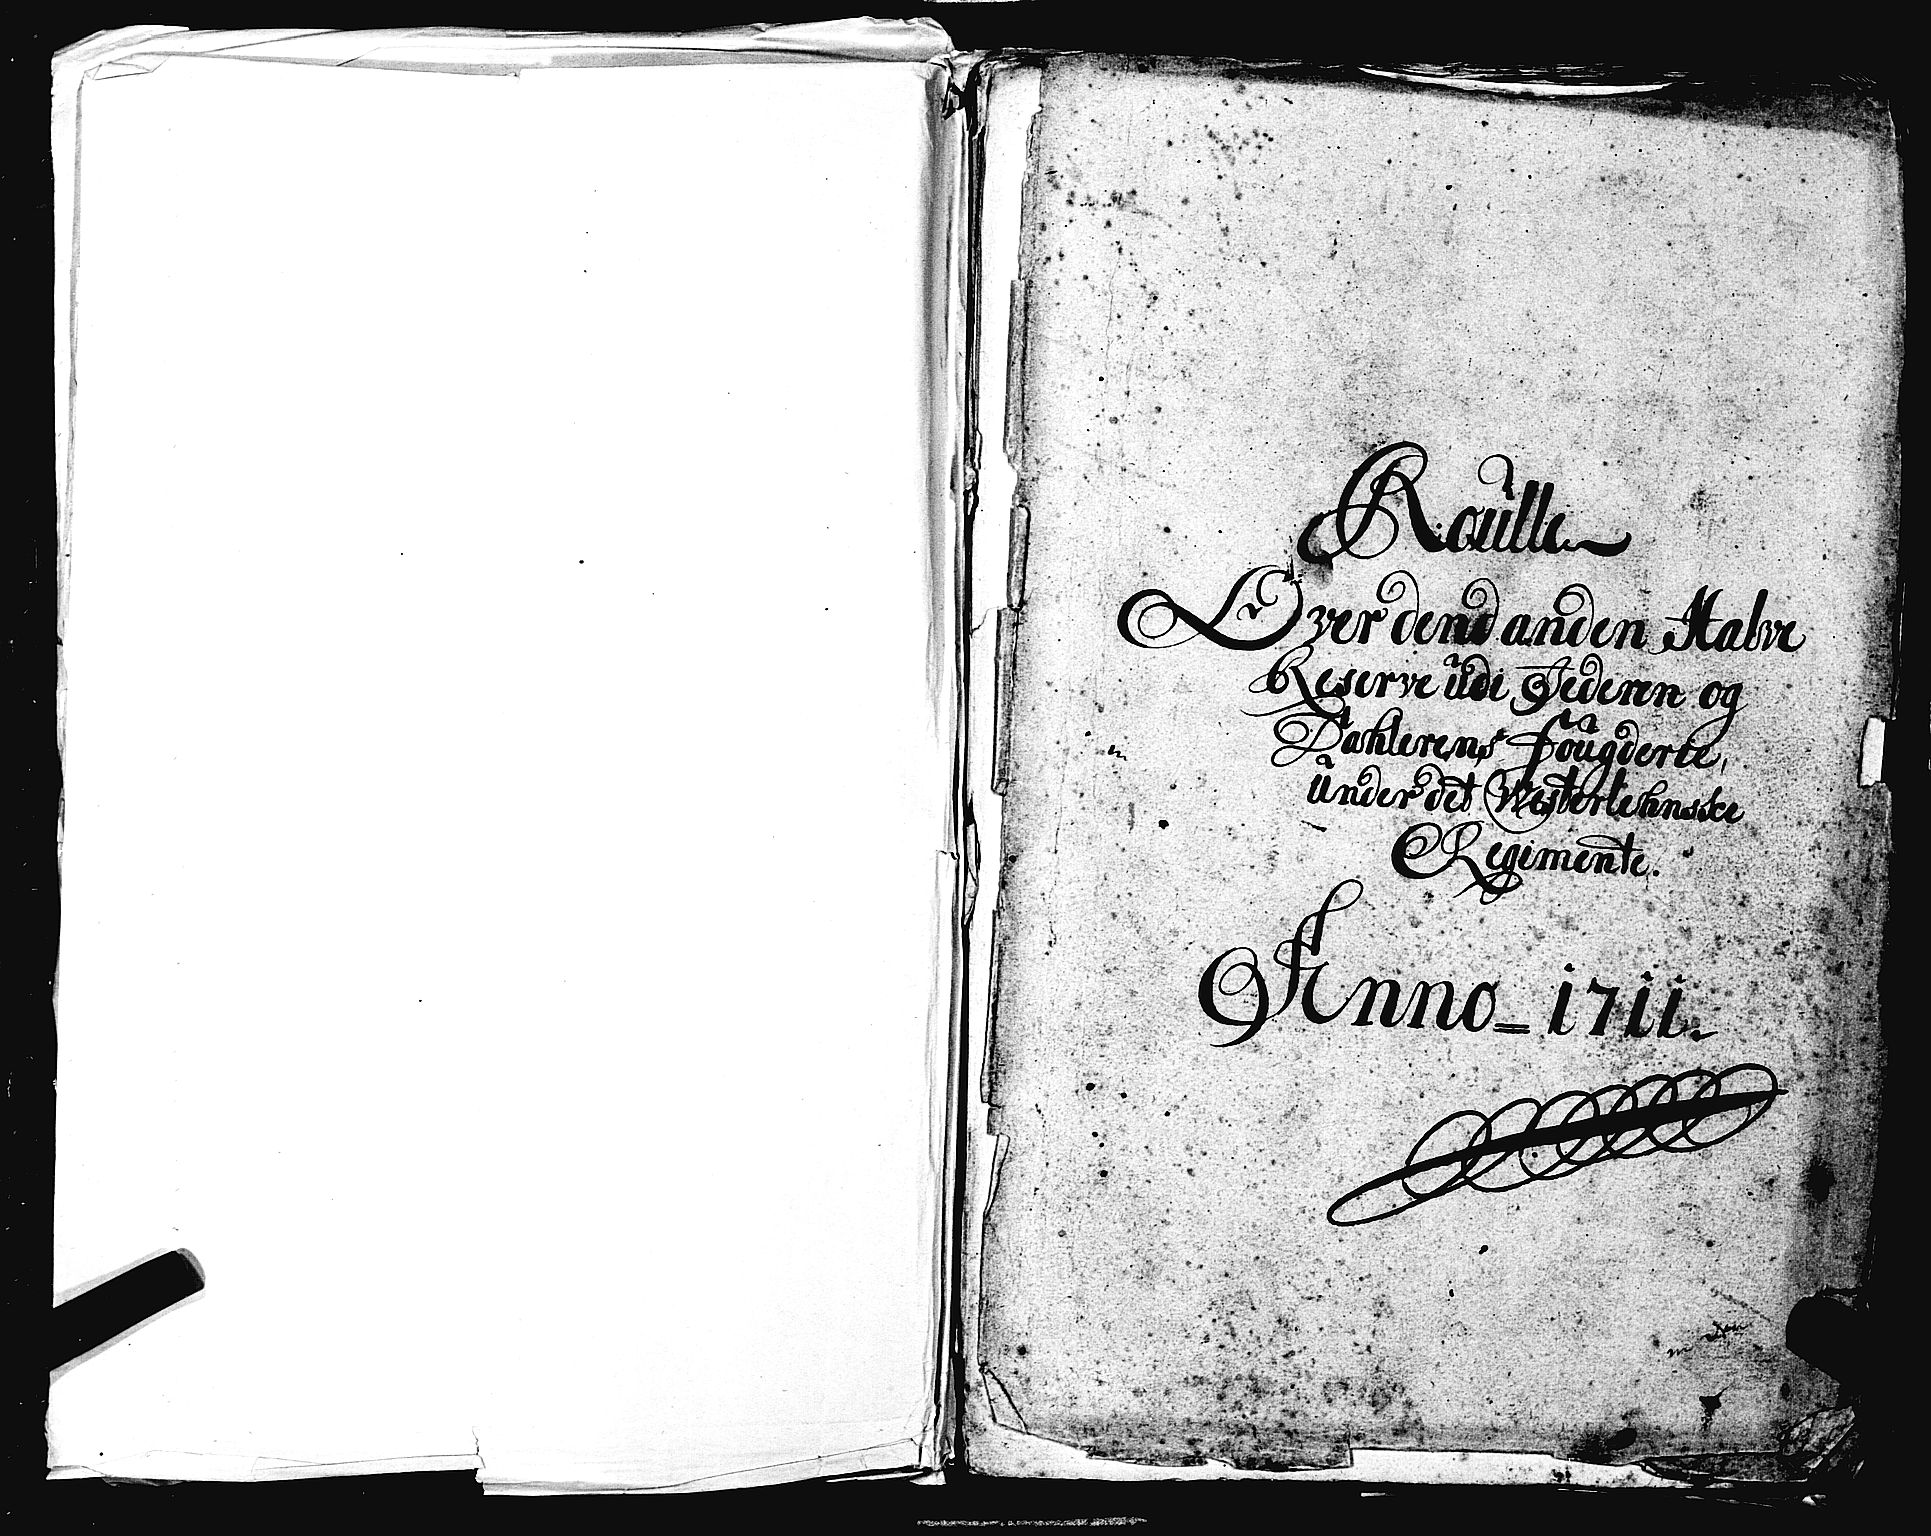 Roulle
Over dend anden Halve
Reserve udi Jederen og
Dahlerens fougderie,
under det Westerlehnsske
Regimente.
Anno = 1711.